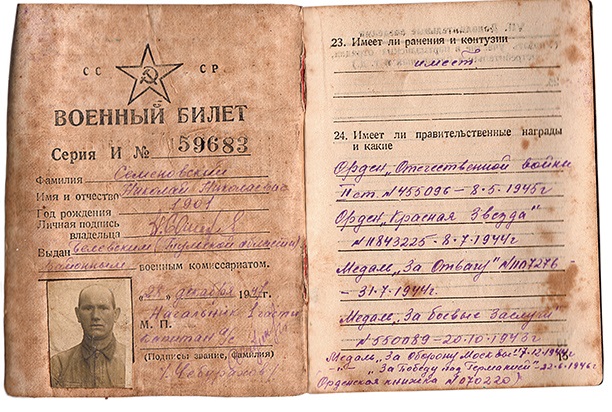 СС СР.
ВОЕННЫЙ БИЛЕТ
Серия И № 159683
Фамилия Семеновский
Имя и отчество Николай Николаевич
Год рождения 1901
Личная подпись
владельца
Выдан Белевским (Тульской области)
районным военным комиссариатом.
„28“ декабря 194 г.
Начальник 2 части
М. П.
капитан а/с
(Подписи звание, фамилия)
23. Имеет ли ранения и контузии
имеет
24. Имеет ли правительственные награды
и какие
Орден „Отечественной войны
II ст. №455096 – 8-5-1945г
Орден „Красная Звезда“
№11843225-8-7-1944г.
Медаль „За Отвагу“ №1107276-
-31-7-1944г.
Медаль „За боевые Заслуги“
№550089-20-10-1943г
Медаль „За Оборону Москвы“ 7-12-1944г
-"- „За Победу над Германией“ -22-6-46г
Орденская книжка №070220